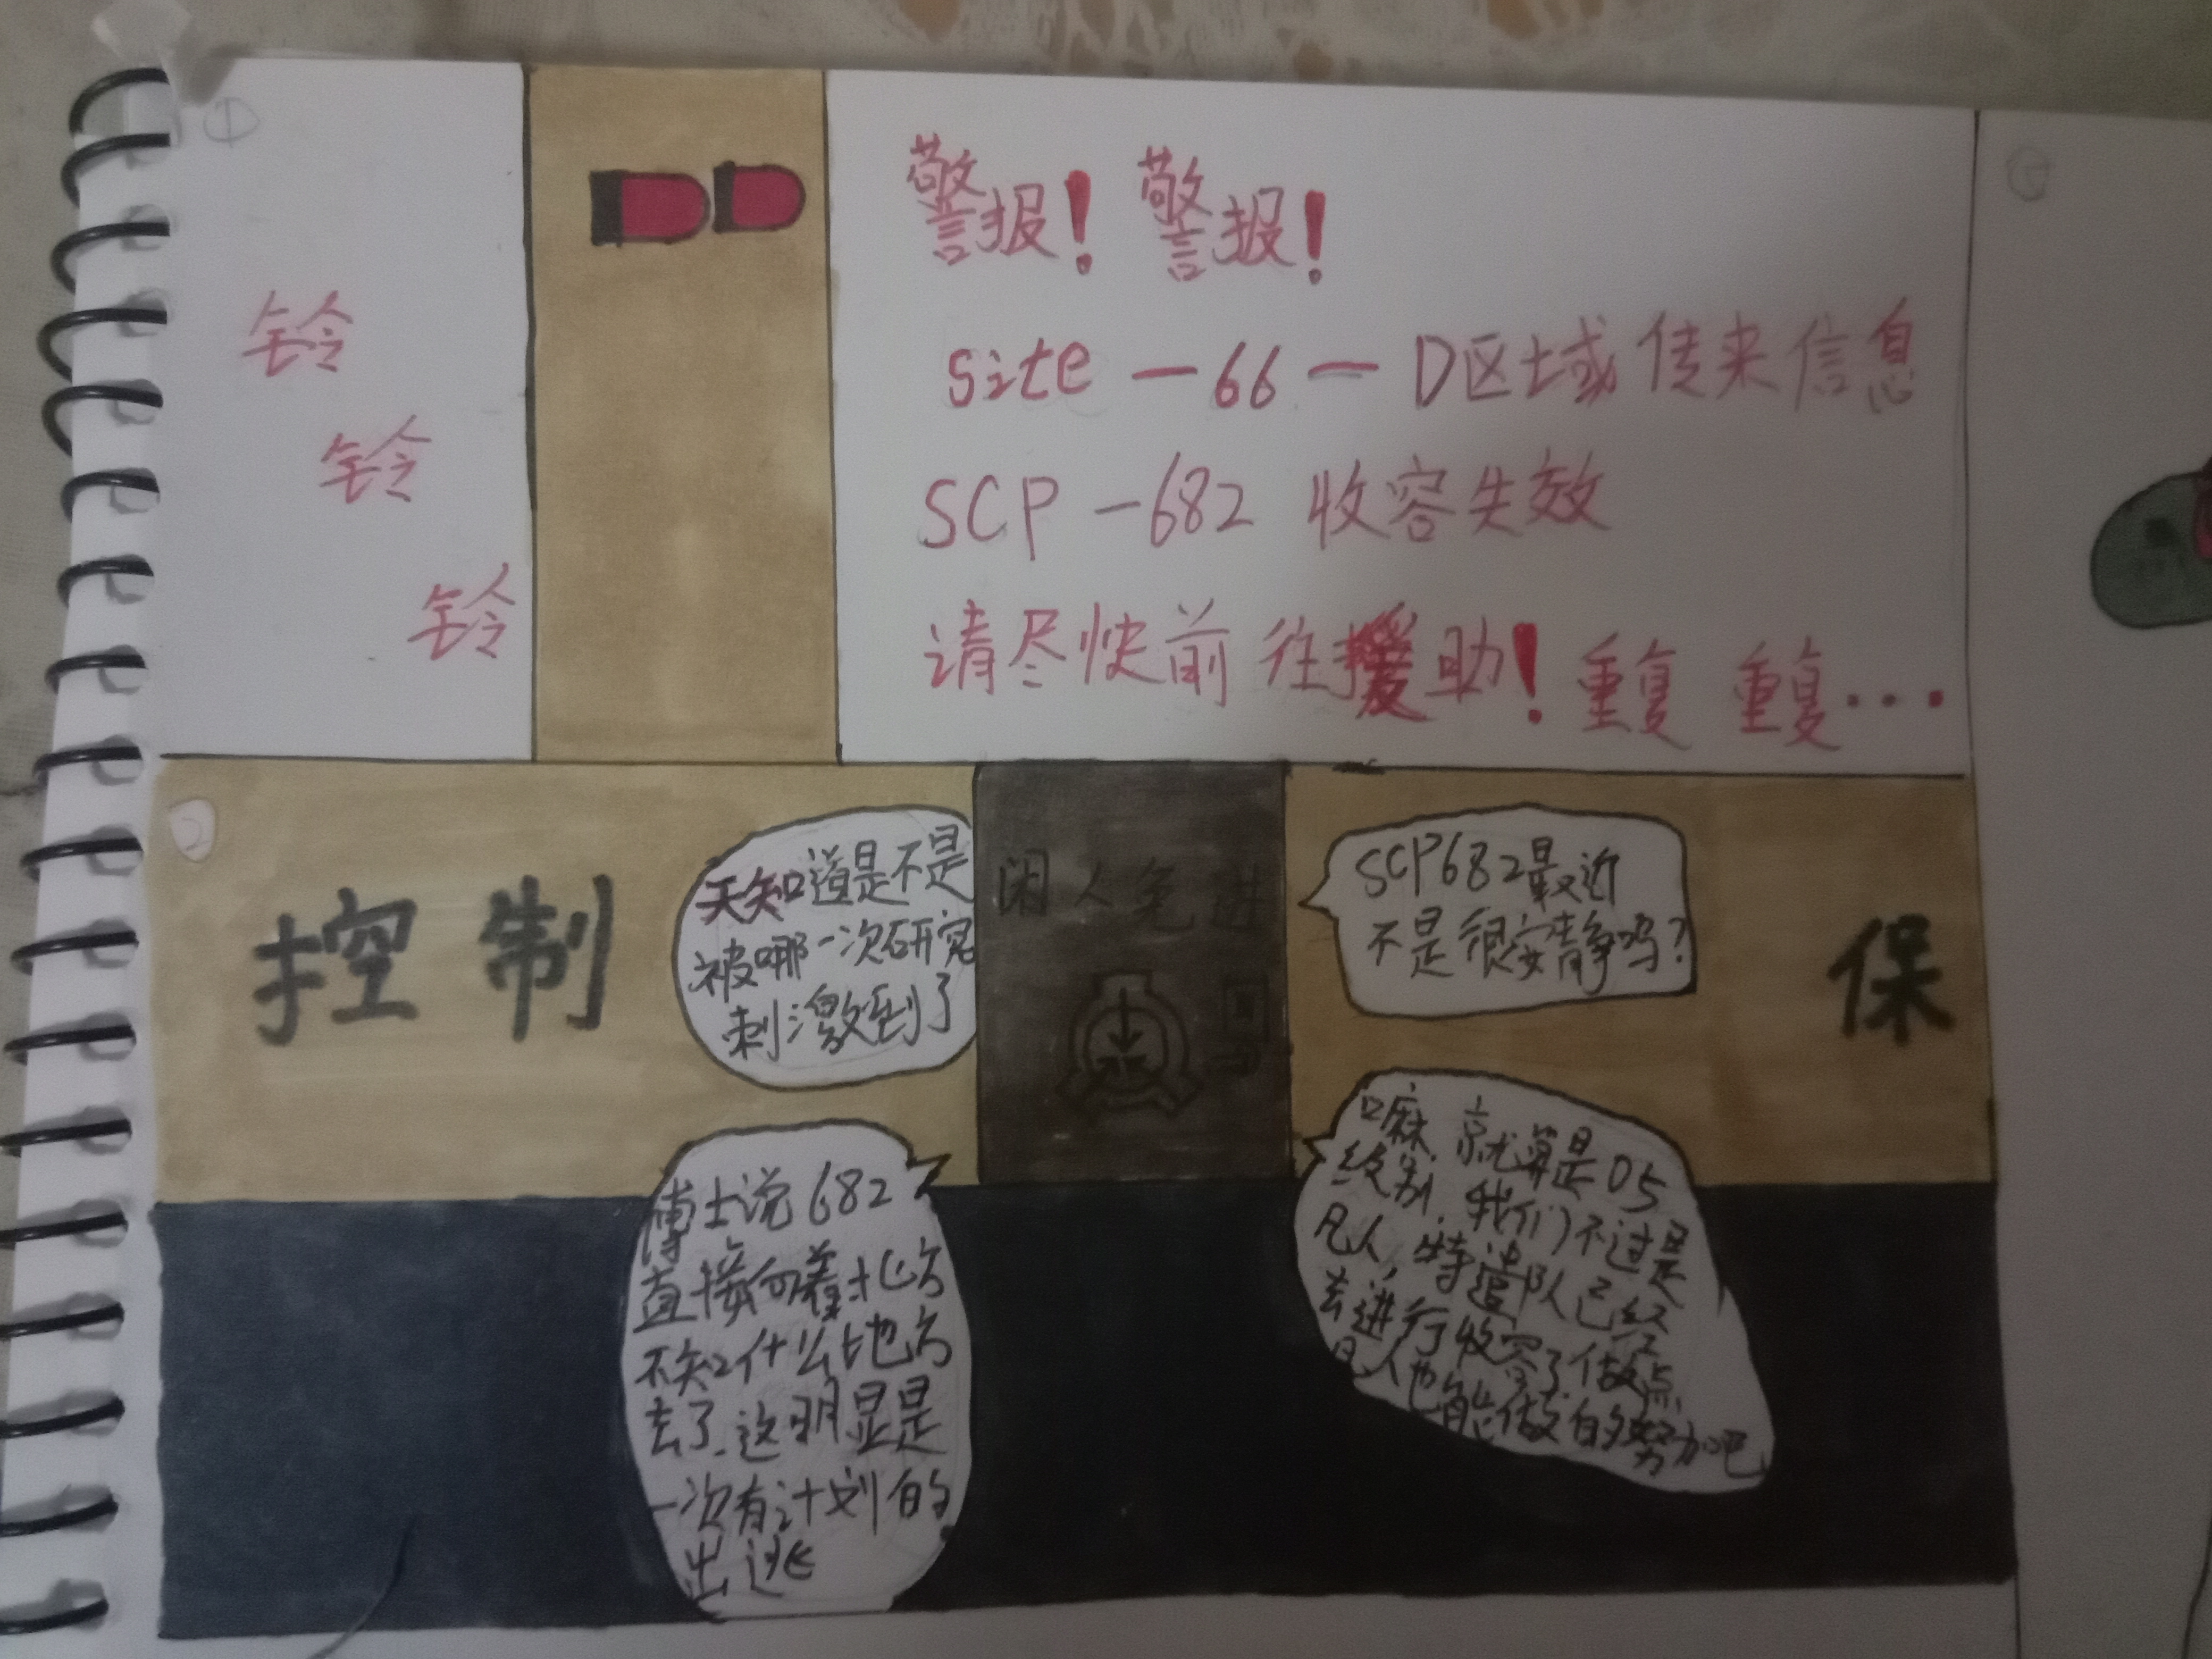 ①
铃
铃
铃
警报！警报！
site－66－D区域传来信息
SCP－682 收容失效
请尽快前往援助！重复 重复…
控制
天知道是不是
被哪一次研究
刺激到了
闲人免进
SCP682最近
不是很安静吗?
保
博士说682
直接向着北方
不知什么地方
去了.这明显是
一次有计划的
出逃
嘛,就算是05
级别,我们不过是
凡人,特遣队已经
去进行收容了.做点
凡人也能做的努力吧